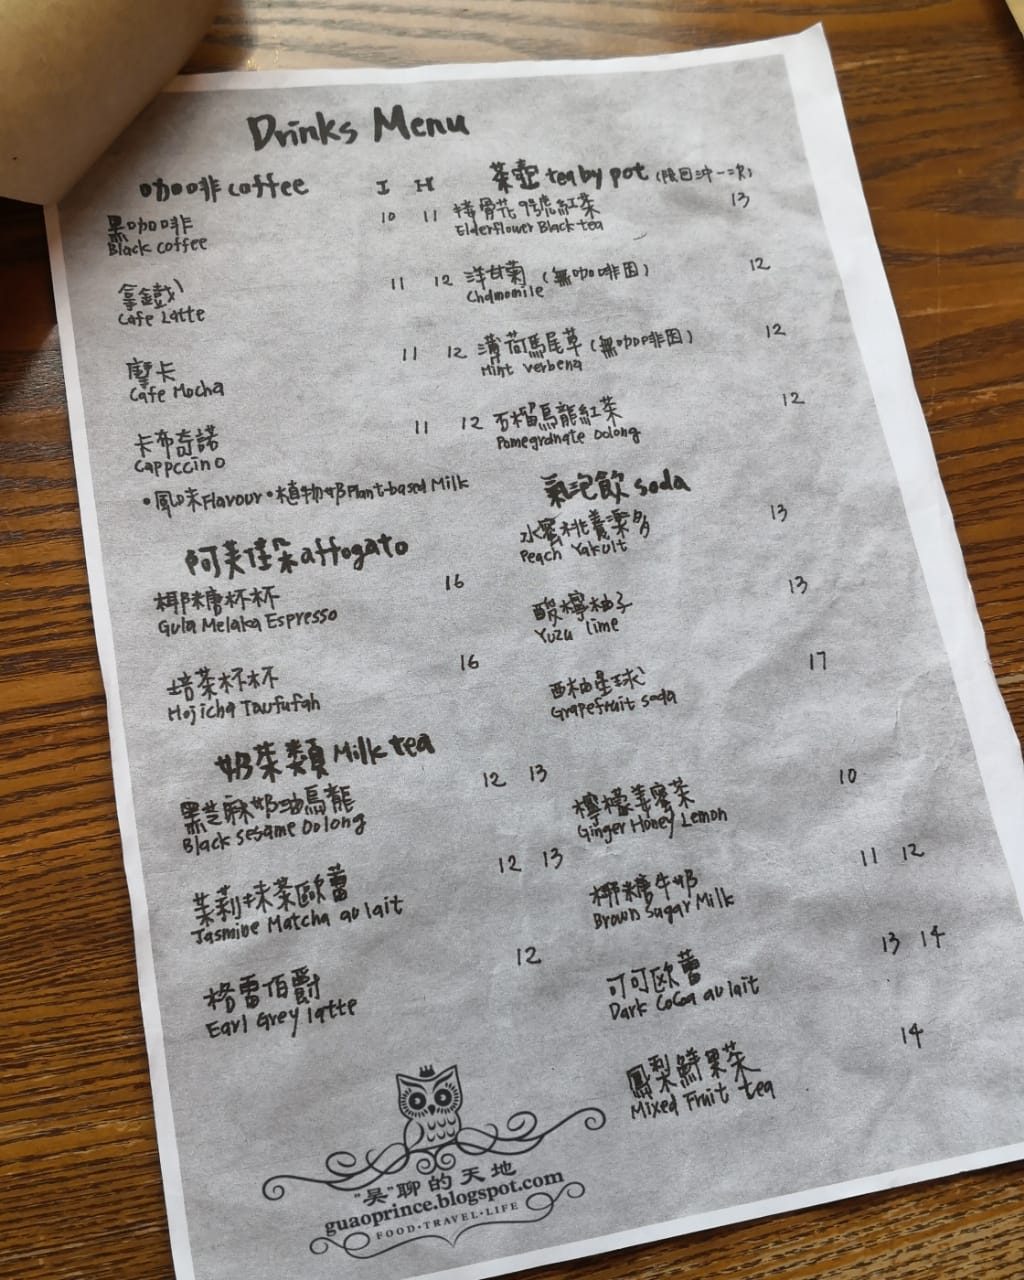 Drinks Menu
咖啡 coffee I H
黑咖啡 10 11
Black coffee
拿鐵 11 12
Cafe Latte
摩卡 11 12
Cafe Mocha
卡布奇諾 11 12
Cappccino
•風味Flavour •植物奶Plant-based Milk
阿芙佳朵 affogato
椰糖杯杯 16
Gula Melaka Espresso
焙茶杯杯 16
Hojicha Taufufah
奶茶類 Milk tea
黑芝麻奶油烏龍 12 13
Black Sesame Oolong
茉莉抹茶歐蕾 12 13
Jasmine Matcha au lait
格雷伯爵 12
Earl Grey latte
茶壺 tea by pot (限回沖一次)
接骨花9號紅茶 13
Elderflower Black tea
洋甘菊 (無咖啡因) 12
Chamomile
薄荷馬尾草 (無咖啡因) 12
Mint verbena
石榴烏龍紅茶 12
Pomegranate Oolong
氣泡飲 soda
水蜜桃養樂多 13
Peach Yakult
酸檸柚子 13
Yuzu lime
西柚星球 17
Grapefruit soda
檸檬姜蜜茶 10
Ginger Honey Lemon
椰糖牛奶 11 12
Brown Sugar Milk
可可歐蕾 13 14
Dark Cocoa au lait
鳳梨鮮果茶 14
Mixed Fruit tea
"吴"聊的天地
guaoprince.blogspot.com
FOOD·TRAVEL·LIFE